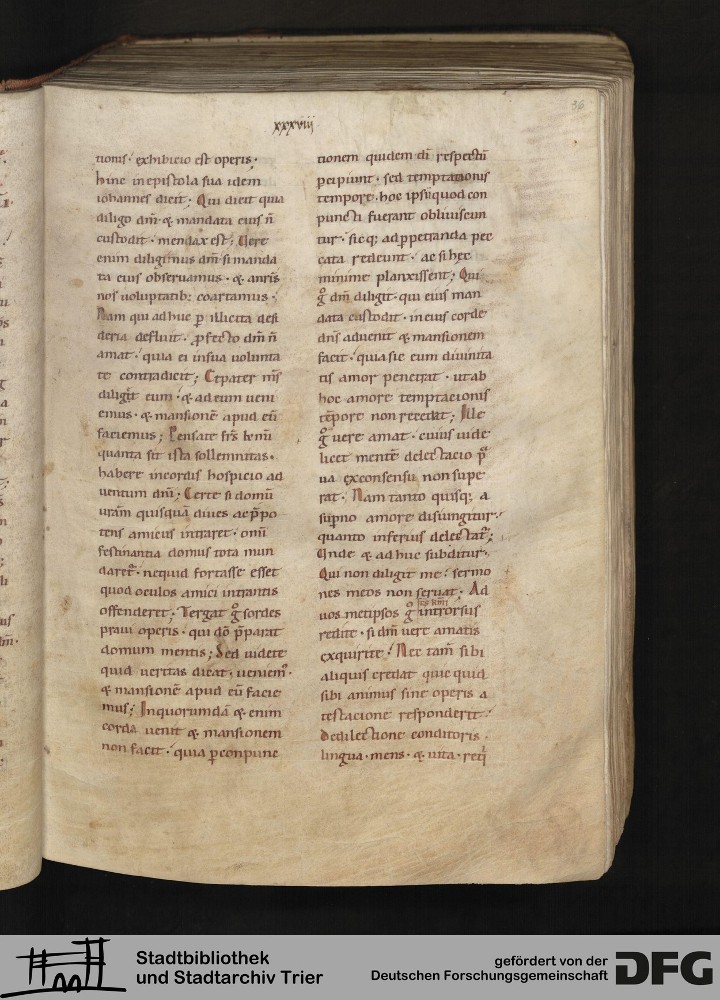 36
xxxviii
tionis· exhibicio est operis·
hinc inepistola sua idem
iohannes dicit· Qui dicit quia
diligo dm̄· & mandata eius n̄
custodit· mendax est; Uere
enim diligimus dm̄· si manda
ta eius observamus· & anr̄is
nos uoluptatib: coartamus·
Nam qui adhuc p̄ illicita desi
deria defluit· p̄fecto dm̄ n̄
amat· quia ei insua uolunta
te contradicit; Et pater m̄s
diliget eum· & ad eum ueni
emus· & mansionē apud eū
faciemus; Pensate fr̄s kr̄mi
quanta sit ista sollemnitas·
habere incordis hospicio ad
uentum dn̄i; Certe si domū
ur̄am quisquā diues ac p̄po
tens amicus intraret· omi
festinantia domus tota mun
daret᷑· nequid fortasse esset
quod oculos amici intrantis
offenderet; Tergat g̊ sordes
praui operis· qui dō p̄parat
domum mentis; Sed uidete
quid ueritas dicat· ueniem᷒·
& mansionē apud eū facie
mus; Inquorumdā &enim
corda uenit & mansionem
non facit· quia p̄conpunc
tionem quidem di᷑ respectū
percipiunt· sed temptationis
tempore· hoc ipsū quod con
puncti fuerant obliuiscun
tur· sicq; adp̄petranda pec
cata redeunt· ac si hec
minime planxissent; Qui
g̊ dm̄ diligit· qui eius man
data custodit· ineius corde
dn̄s aduenit & mansionem
facit· quia sic eum diuinita
tis amor penetrat· ut ab
hoc amore temptacionis
tēpore non recedat; Ille
g̊ uere amat· cuius uide
licet mentē delectacio p̄
ua exconsensu non supe
rat· Nam tanto quisq; a
sup̄no amore disiungitur·
quanto inferius delectat᷑;
Unde & adhuc subditur·
Qui non diligit me· sermo
nes meos non seruat; Ad
uos metipsos g̊ introrsus
redite· si dm̄ uere amatis
exquirite· Nec tam̄ sibi
aliquis credat quicquid
sibi animus sine operis a
testacione responderit·
Dedilectione conditoris·
lingua· mens· & uita· req
Stadtbibliothek
und Stadtarchiv Trier
gefördert von der
Deutschen Forschungsgemeinschaft
DFG